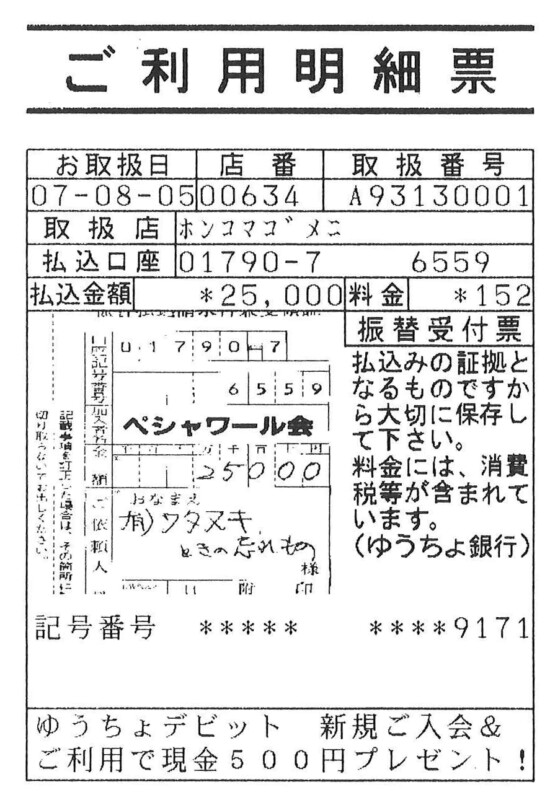 ご利用明細票
お取扱日 店番 取扱番号
07-08-05 00634 A93130001
取扱店 ホンコマゴメニ
払込口座 01790-7 6559
払込金額 *25,000 料金 *152
口座記号番号 01790-7
6559
加入者名 ペシャワール会
金額 25000
おなまえ
ご依頼人 (有)ワタヌキ
ときの忘れもの
様
附 印
記載事項を訂正した場合は、その箇所に
切り取らないでお出しください。
振替受付票
払込みの証拠と
なるものですか
ら大切に保存し
て下さい。
料金には、消費
税等が含まれて
います。
(ゆうちょ銀行)
記号番号 ***** ****9171
ゆうちょデビット 新規ご入会&
ご利用で現金500円プレゼント!